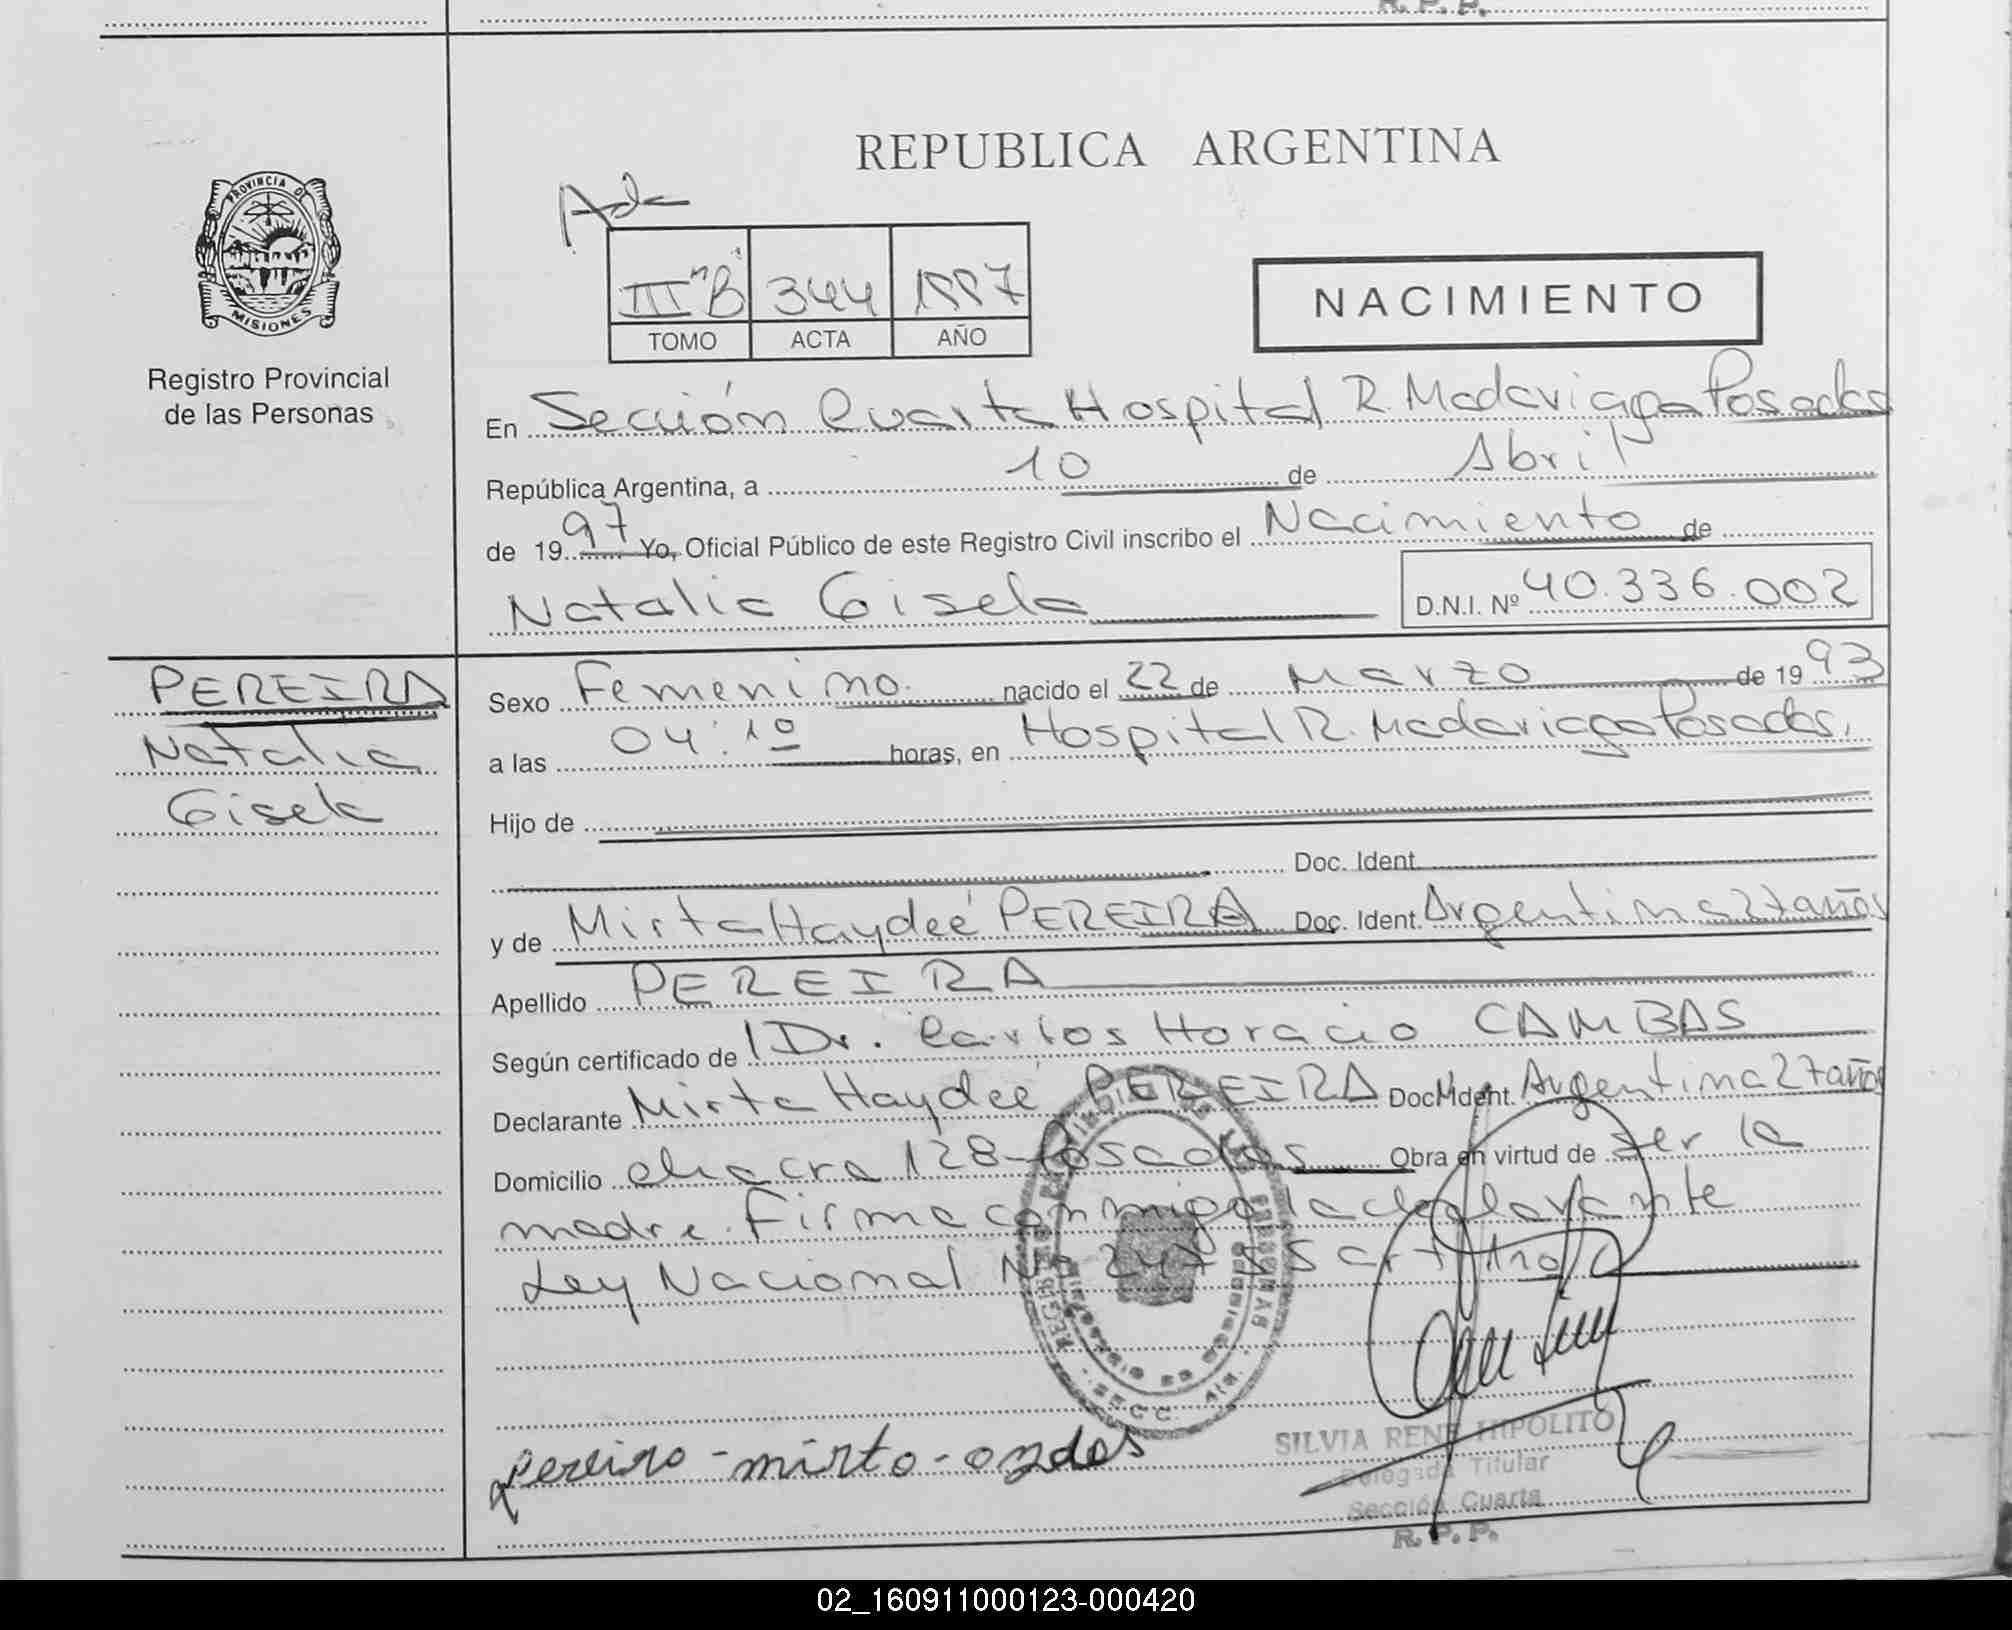 R. P. P.
REPUBLICA ARGENTINA
PROVINCIA DE
MISIONES
Registro Provincial
de las Personas
III "B" 344 1997
TOMO ACTA AÑO
NACIMIENTO
En Sección Cuarta Hospital R. Madariaga Posadas
República Argentina, a 10 de Abril
de 1997 Yo, Oficial Público de este Registro Civil inscribo el Nacimiento de
Natalia Gisela D.N.I. Nº 40.336.002
PEREIRA
Natalia
Gisela
Sexo Femenino. nacido el 22 de Marzo de 1993
a las 04:10 horas, en Hospital R. Madariaga Posadas.
Hijo de
Doc. Ident.
y de Mirta Haydeé PEREIRA Doc. Ident. Argentina 27 años
Apellido PEREIRA
Según certificado de Dr. Carlos Horacio CAMBAS
Declarante Mirta Haydeé PEREIRA Doc. Ident. Argentina 27 años
Domicilio chacra 128-Posadas Obra en virtud de ser la
madre. Firma conmigo la declarante
Ley Nacional Nº 24755 art
pereira-mirta
SILVIA RENE HIPOLITO
Delegada Titular
Sección Cuarta
R. P. P.
02_160911000123-000420